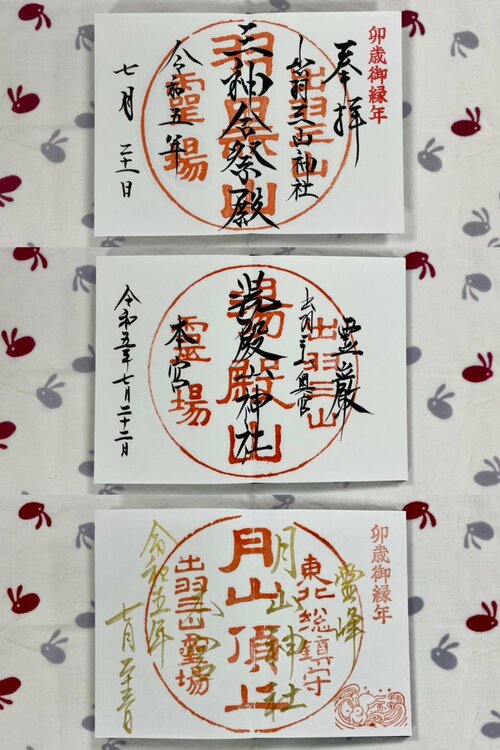 卯歳御縁年
奉拝
出羽三山神社
出羽三山
三神合祭殿
羽黒山
霊場
令和五年
七月二十一日
霊巌
出羽三山奥宮
出羽三山
湯殿山神社
湯殿山
本宮
霊場
令和五年七月二十二日
卯歳御縁年
霊峰
東北総鎮守
月山神社
月山頂上
出羽三山霊場
令和五年
七月二十三日